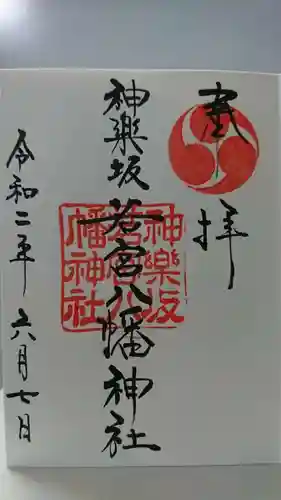 奉拝
神楽坂若宮八幡神社
神樂坂
若宮八
幡神社
令和二年六月七日